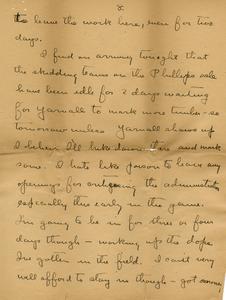 to leave the work here, even for two
days.
I find on arriving tonight that
the skidding teams on the Phillips sale
have been idle for 2 days waiting
for Yarnall to mark more timber – so
tomorrow unless Yarnall shows up
I I'll like down there and mark
some. I hate like poison to leave any
openings for criticizing the administration
especially this early in the game.
I'm going to be in for three or four
days though – working up the dope
I've gotten in the field. I can't very
well afford to stay in though – got